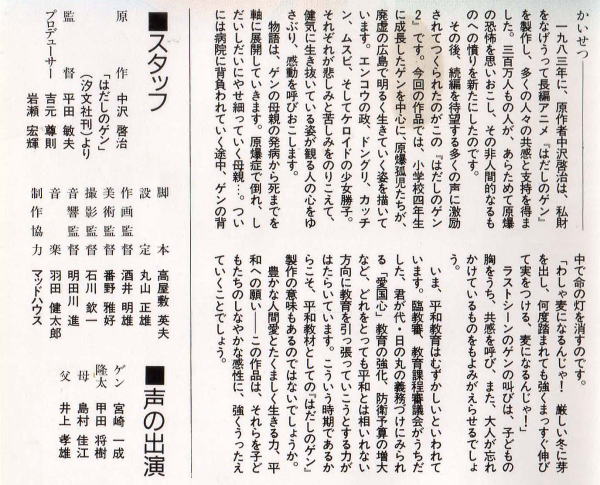 かいせつ
一九八三年に、原作者中沢啓治は、私財
をなげうって長編アニメ『はだしのゲン』
を製作し、多くの人々の共感と支持を得ま
した。三百万人もの人が、あらためて原爆
の恐怖を思いおこし、その非人間的なるも
のへの憤りを新たにしたのです。
その後、続編を待望する多くの声に激励
されてつくられたのがこの『はだしのゲン
2』です。今回の作品では、小学校四年生
に成長したゲンを中心に、原爆孤児たちが、
廃虚の広島で明るく生きていく姿を描いて
います。エンコウの政、ドングリ、カッチ
ン、ムスビ、そしてケロイドの少女勝子。
それぞれが悲しみと苦しみをのりこえて、
健気に生き抜いている姿が観る人の心をゆ
さぶり、感動を呼びおこします。
物語は、ゲンの母親の発病から死までを
軸に展開していきます。原爆症で倒れ、し
だいしだいにやせ細っていく母親…。つい
には病院に背負われていく途中、ゲンの背
中で命の灯を消すのです。
「わしゃ麦になるんじゃ！　厳しい冬に芽
を出し、何度踏まれても強くまっすぐ伸び
て実をつける、麦になるんじゃ！」
ラストシーンのゲンの叫びは、子どもの
胸をうち、共感を呼び、また、大人が忘れ
かけているものをもよみがえらせるでしょ
う。
いま、平和教育はむずかしいといわれて
います。臨教審、教育課程審議会がうちだ
した、君が代・日の丸の義務づけにみられ
る「愛国心」教育の強化、防衛予算の増大
など、どれをとっても平和とは相いれない
方向に教育を引っ張っていこうとする力が
はたらいています。こういう時期であるか
らこそ、平和教材としての『はだしのゲン』
製作の意味もあるのではないでしょうか。
豊かな人間愛とたくましく生きる力、平
和への願い――この作品は、それらを子ど
もたちのしなやかな感性に、強くうったえ
ていくことでしょう。
■スタッフ
原作　中沢 啓治
「はだしのゲン」
（汐文社刊）より
監督　平田 敏夫
プロデューサー　吉元 尊則
岩瀬 宏輝
脚本　高屋敷 英夫
設定　丸山 正雄
作画監督　酒井 明雄
美術監督　番野 雅好
撮影監督　石川 欽一
音響監督　明田川 進
音楽　羽田 健太郎
制作協力　マッドハウス
■声の出演
ゲン　宮崎 一成
隆太　甲田 将樹
母　島村 佳江
父　井上 孝雄